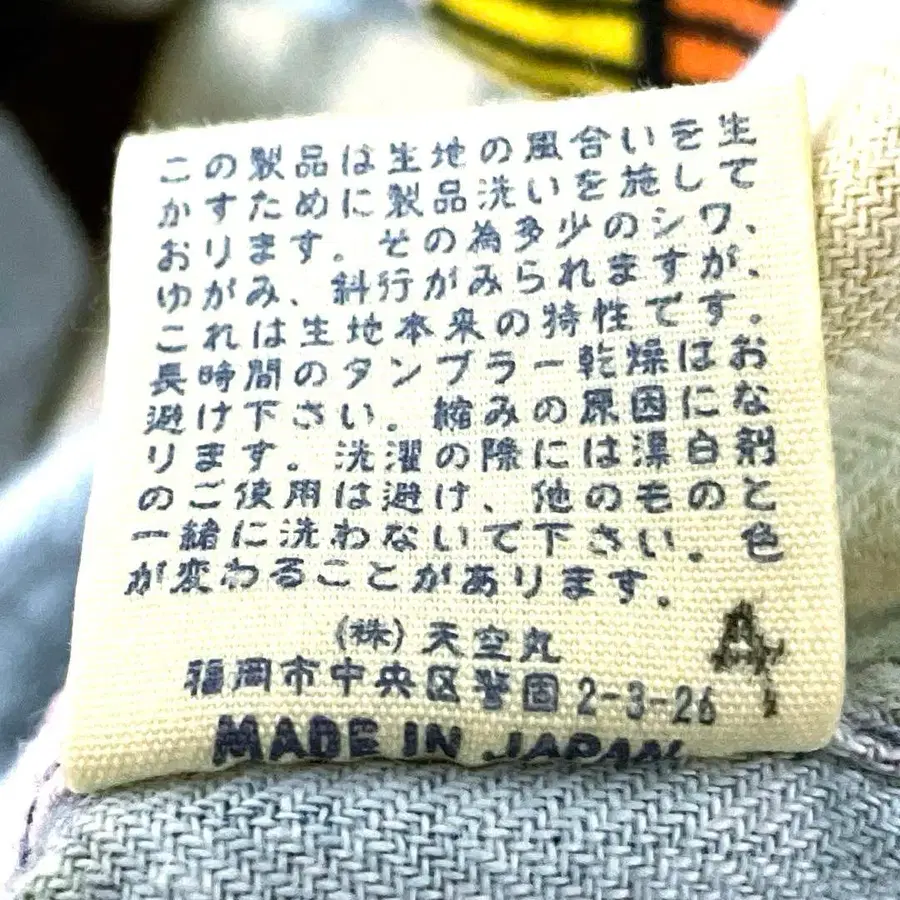 この製品は生地の風合いを生
かすために製品洗いを施して
おります。その為多少のシワ、
ゆがみ、斜行がみられますが、
これは生地本来の特性です。
長時間のタンブラー乾燥はお
避け下さい。縮みの原因にな
ります。洗濯の際には漂白剤
のご使用は避け、他のものと
一緒に洗わないで下さい。色
が変わることがあります。
(株)天空丸
福岡市中央区警固2-3-26
MADE IN JAPAN